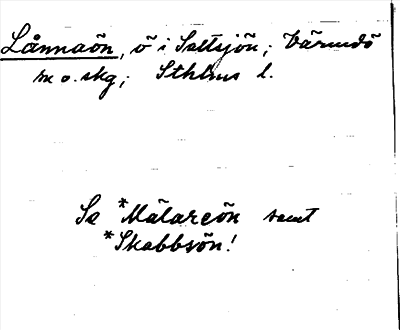 Lånnaön, ö i Saltsjön; Värmdö
sn o. skg; Sthlms l.
Se *Mälareön samt
*Skabbsön!